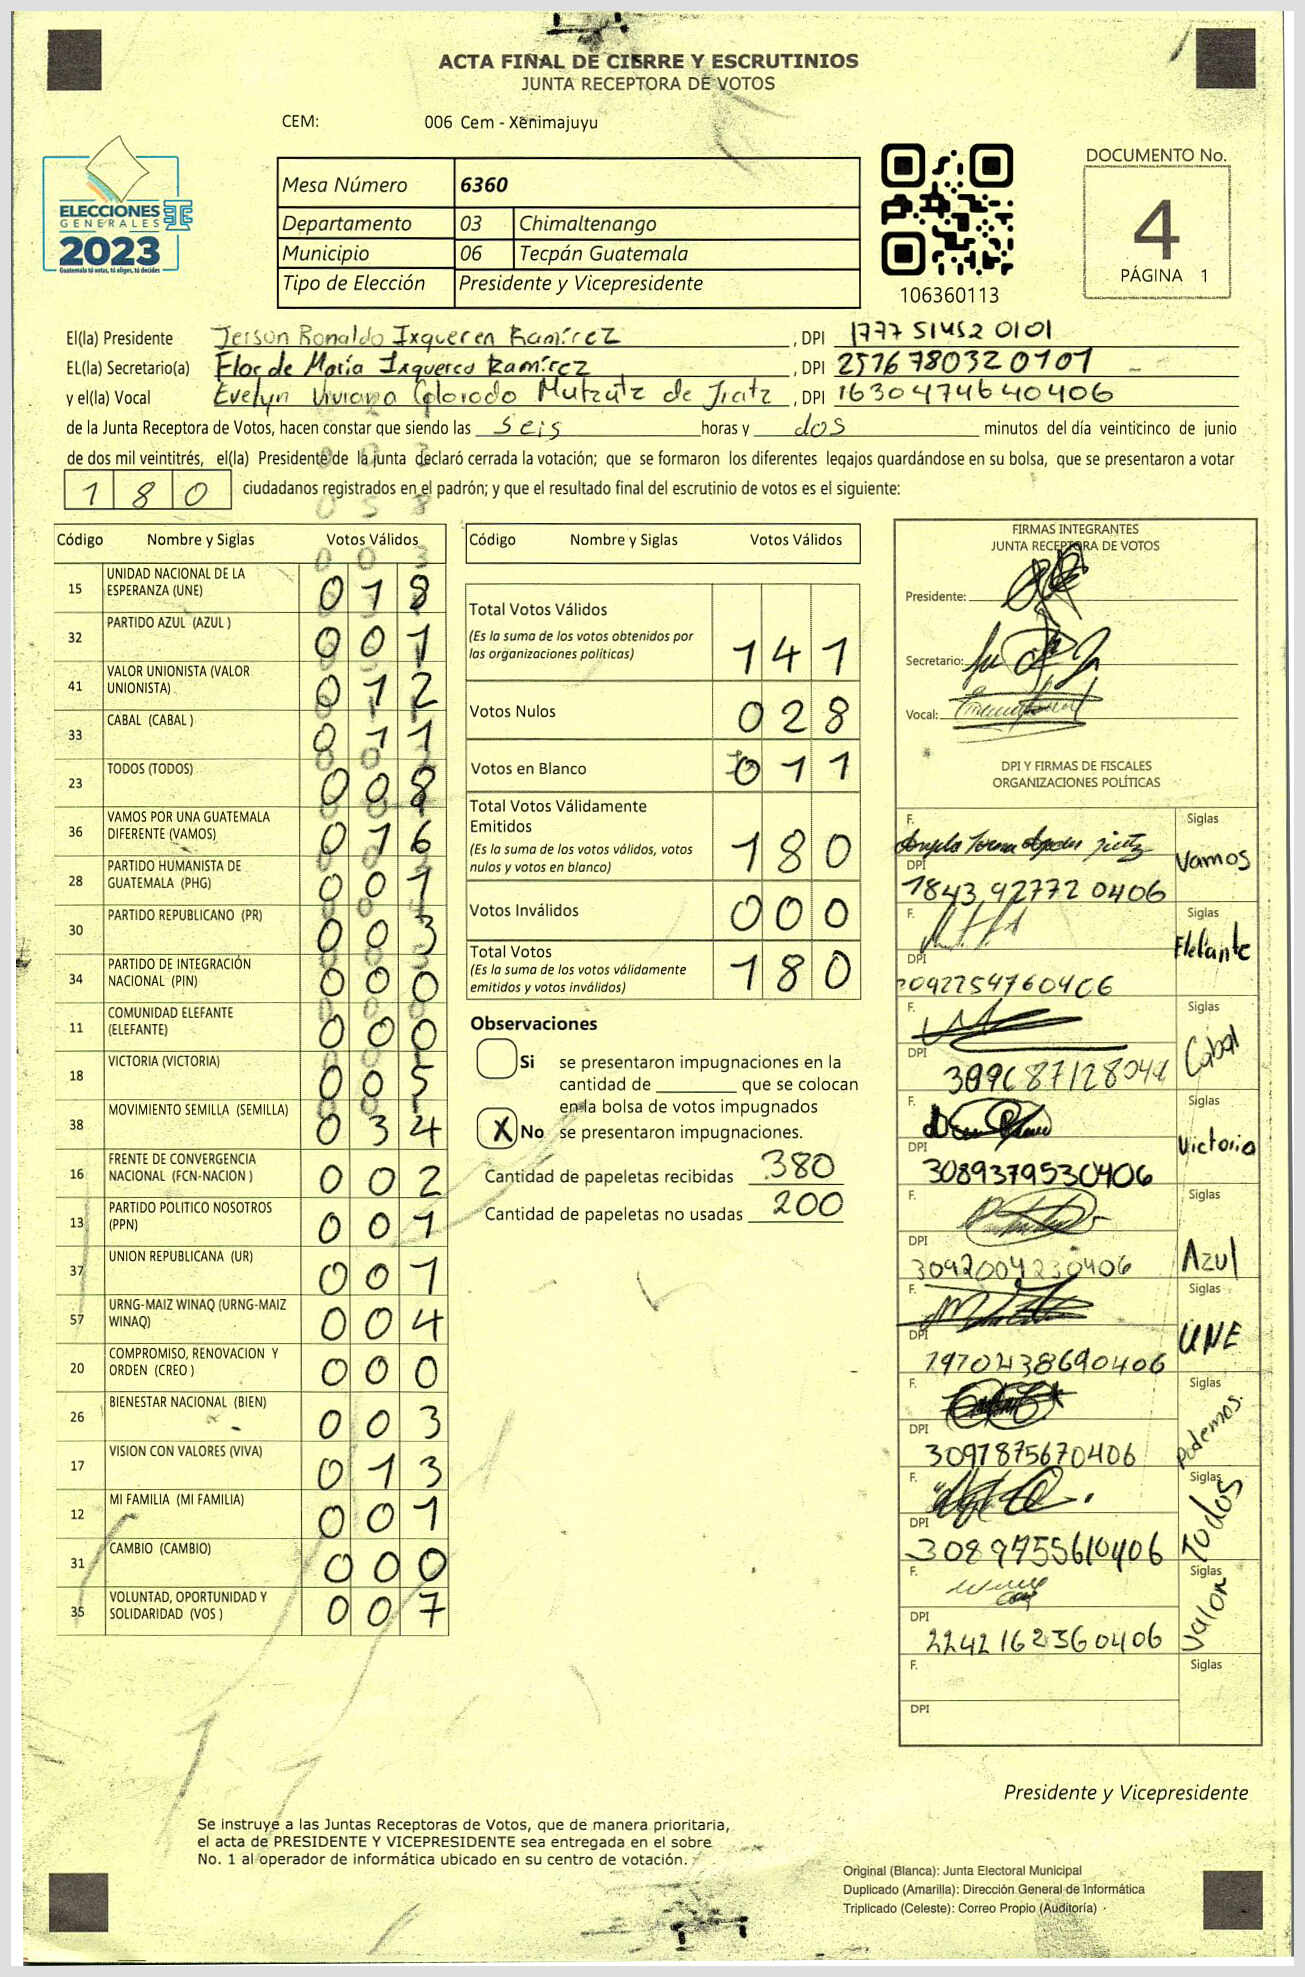 ACTA FINAL DE CIERRE Y ESCRUTINIOS
JUNTA RECEPTORA DE VOTOS
CEM: 006 Cem - Xenimajuyu
ELECCIONES
GENERALES
2023
Guatemala tú votas, tú eliges, tú decides
Mesa Número 6360
Departamento 03 Chimaltenango
Municipio 06 Tecpán Guatemala
Tipo de Elección Presidente y Vicepresidente
106360113
DOCUMENTO No.
4
PÁGINA 1
El(la) Presidente Jerson Ronaldo Ixqueren Ramírez, DPI 1777 51452 0101
EL(la) Secretario(a) Flor de María Ixqueren Ramírez, DPI 2576 78032 0101
y el(la) Vocal Evelyn Viviana Colorado Mutzutz de Jiatz, DPI 1630474640406
de la Junta Receptora de Votos, hacen constar que siendo las seis horas y dos minutos del día veinticinco de junio
de dos mil veintitrés, el(la) Presidente de la junta declaró cerrada la votación; que se formaron los diferentes legajos guardándose en su bolsa, que se presentaron a votar
180 ciudadanos registrados en el padrón; y que el resultado final del escrutinio de votos es el siguiente:
Código Nombre y Siglas Votos Válidos
15 UNIDAD NACIONAL DE LA ESPERANZA (UNE) 018
32 PARTIDO AZUL (AZUL ) 001
41 VALOR UNIONISTA (VALOR UNIONISTA) 012
33 CABAL (CABAL ) 011
23 TODOS (TODOS) 008
36 VAMOS POR UNA GUATEMALA DIFERENTE (VAMOS) 016
28 PARTIDO HUMANISTA DE GUATEMALA (PHG) 001
30 PARTIDO REPUBLICANO (PR) 003
34 PARTIDO DE INTEGRACIÓN NACIONAL (PIN) 000
11 COMUNIDAD ELEFANTE (ELEFANTE) 000
18 VICTORIA (VICTORIA) 005
38 MOVIMIENTO SEMILLA (SEMILLA) 034
16 FRENTE DE CONVERGENCIA NACIONAL (FCN-NACION ) 002
13 PARTIDO POLITICO NOSOTROS (PPN) 001
37 UNION REPUBLICANA (UR) 001
57 URNG-MAIZ WINAQ (URNG-MAIZ WINAQ) 004
20 COMPROMISO, RENOVACION Y ORDEN (CREO ) 000
26 BIENESTAR NACIONAL (BIEN) 003
17 VISION CON VALORES (VIVA) 013
12 MI FAMILIA (MI FAMILIA) 001
31 CAMBIO (CAMBIO) 000
35 VOLUNTAD, OPORTUNIDAD Y SOLIDARIDAD (VOS ) 007
Código Nombre y Siglas Votos Válidos
Total Votos Válidos
(Es la suma de los votos obtenidos por
las organizaciones políticas) 141
Votos Nulos 028
Votos en Blanco 011
Total Votos Válidamente
Emitidos
(Es la suma de los votos válidos, votos
nulos y votos en blanco) 180
Votos Inválidos 000
Total Votos
(Es la suma de los votos válidamente
emitidos y votos inválidos) 180
Observaciones
Si se presentaron impugnaciones en la
cantidad de ________ que se colocan
en la bolsa de votos impugnados
X No se presentaron impugnaciones.
Cantidad de papeletas recibidas 380
Cantidad de papeletas no usadas 200
FIRMAS INTEGRANTES
JUNTA RECEPTORA DE VOTOS
Presidente:
Secretario:
Vocal:
DPI Y FIRMAS DE FISCALES
ORGANIZACIONES POLÍTICAS
F. Siglas Vamos
DPI 1843 92772 0406
F. Siglas Elefante
DPI 3092254760406
F. Siglas Cabal
DPI
F. Siglas Victoria
DPI 3089379530406
F. Siglas Azul
DPI 3092004230406
F. Siglas UNE
DPI 1970438690406
F. Siglas Podemos
DPI 3091875670406
F. Siglas Todos
DPI 3089755610406
F. Siglas Valor
DPI 2242162360406
F. Siglas
DPI
Presidente y Vicepresidente
Se instruye a las Juntas Receptoras de Votos, que de manera prioritaria,
el acta de PRESIDENTE Y VICEPRESIDENTE sea entregada en el sobre
No. 1 al operador de informática ubicado en su centro de votación.
Original (Blanca): Junta Electoral Municipal
Duplicado (Amarilla): Dirección General de Informática
Triplicado (Celeste): Correo Propio (Auditoría)